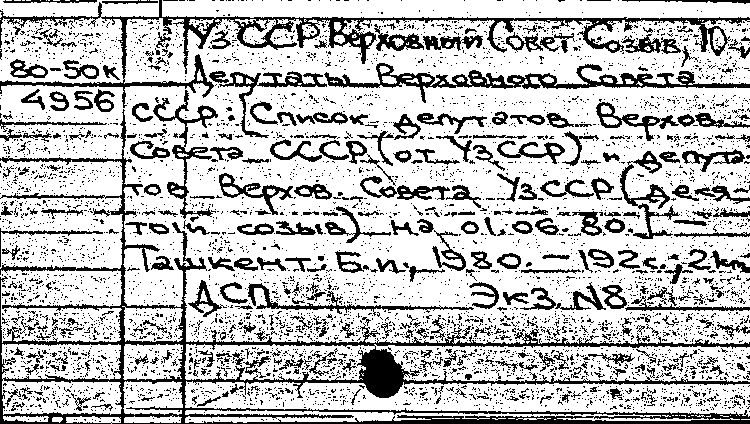 УзССР. Верховный Совет. Созыв, 10.
80-50к Депутаты Верховного Совета
4956 СССР: [Список депутатов Верхов.
Совета СССР (от УзССР) и депута-
тов Верхов. Совета УзССР (деся-
тый созыв) на 01.06.80.] —
Ташкент: Б.и., 1980. — 192с.; 2
ДСП Экз N8